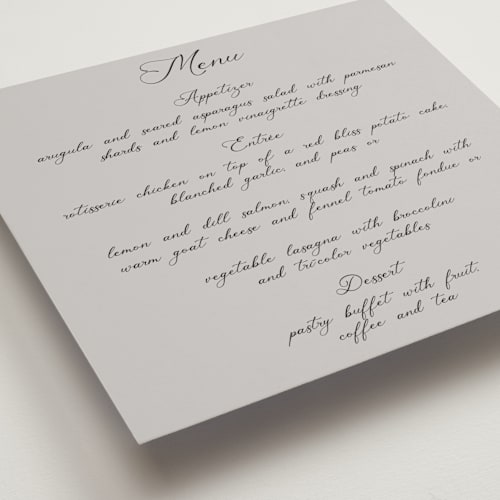 Menu
Appetizer
arugula and seared asparagus salad with parmesan
shards and lemon vinaigrette dressing
Entrée
rotisserie chicken on top of a red bliss potato cake,
blanched garlic, and peas or
lemon and dill salmon, squash and spinach with
warm goat cheese and fennel tomato fondue or
vegetable lasagna with broccoline
and tricolor vegetables
Dessert
pastry buffet with fruit,
coffee and tea